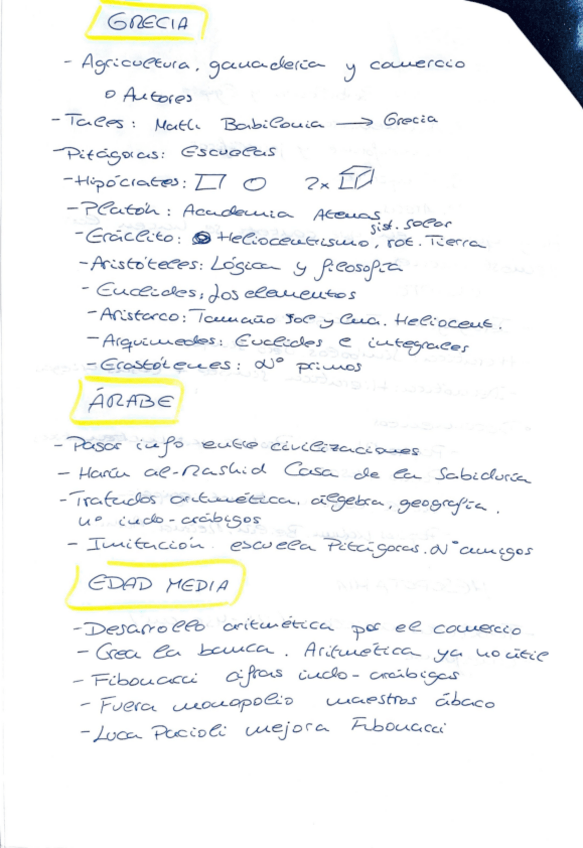 GRECIA
- Agricultura, ganadería y comercio
o Autores
- Tales: Math. Babilonia → Grecia
- Pitágoras: Escuelas
- Hipócrates: 2x
- Platón: Academia Atenas
sist. solar
- Eráclito: Heliocentrismo, rot. Tierra
- Aristóteles: Lógica y filosofía
- Euclides: Los elementos
- Aristarco: Tamaño Sol y Luna. Heliocent.
- Arquímedes: Euclides e integrales
- Erastótenes: Nº primos
ÁRABE
- Pasar info entre civilizaciones
- Harún al-Rashid Casa de la Sabiduría
- Tratados aritmética, álgebra, geografía,
nº indo-arábigos
- Imitación escuela Pitágoras. Nº amigos
EDAD MEDIA
- Desarrollo aritmética por el comercio
- Crea la banca. Aritmética ya no útil
- Fibonacci cifras indo-arábigas
- Fuera monopolio maestros ábaco
- Luca Pacioli mejora Fibonacci